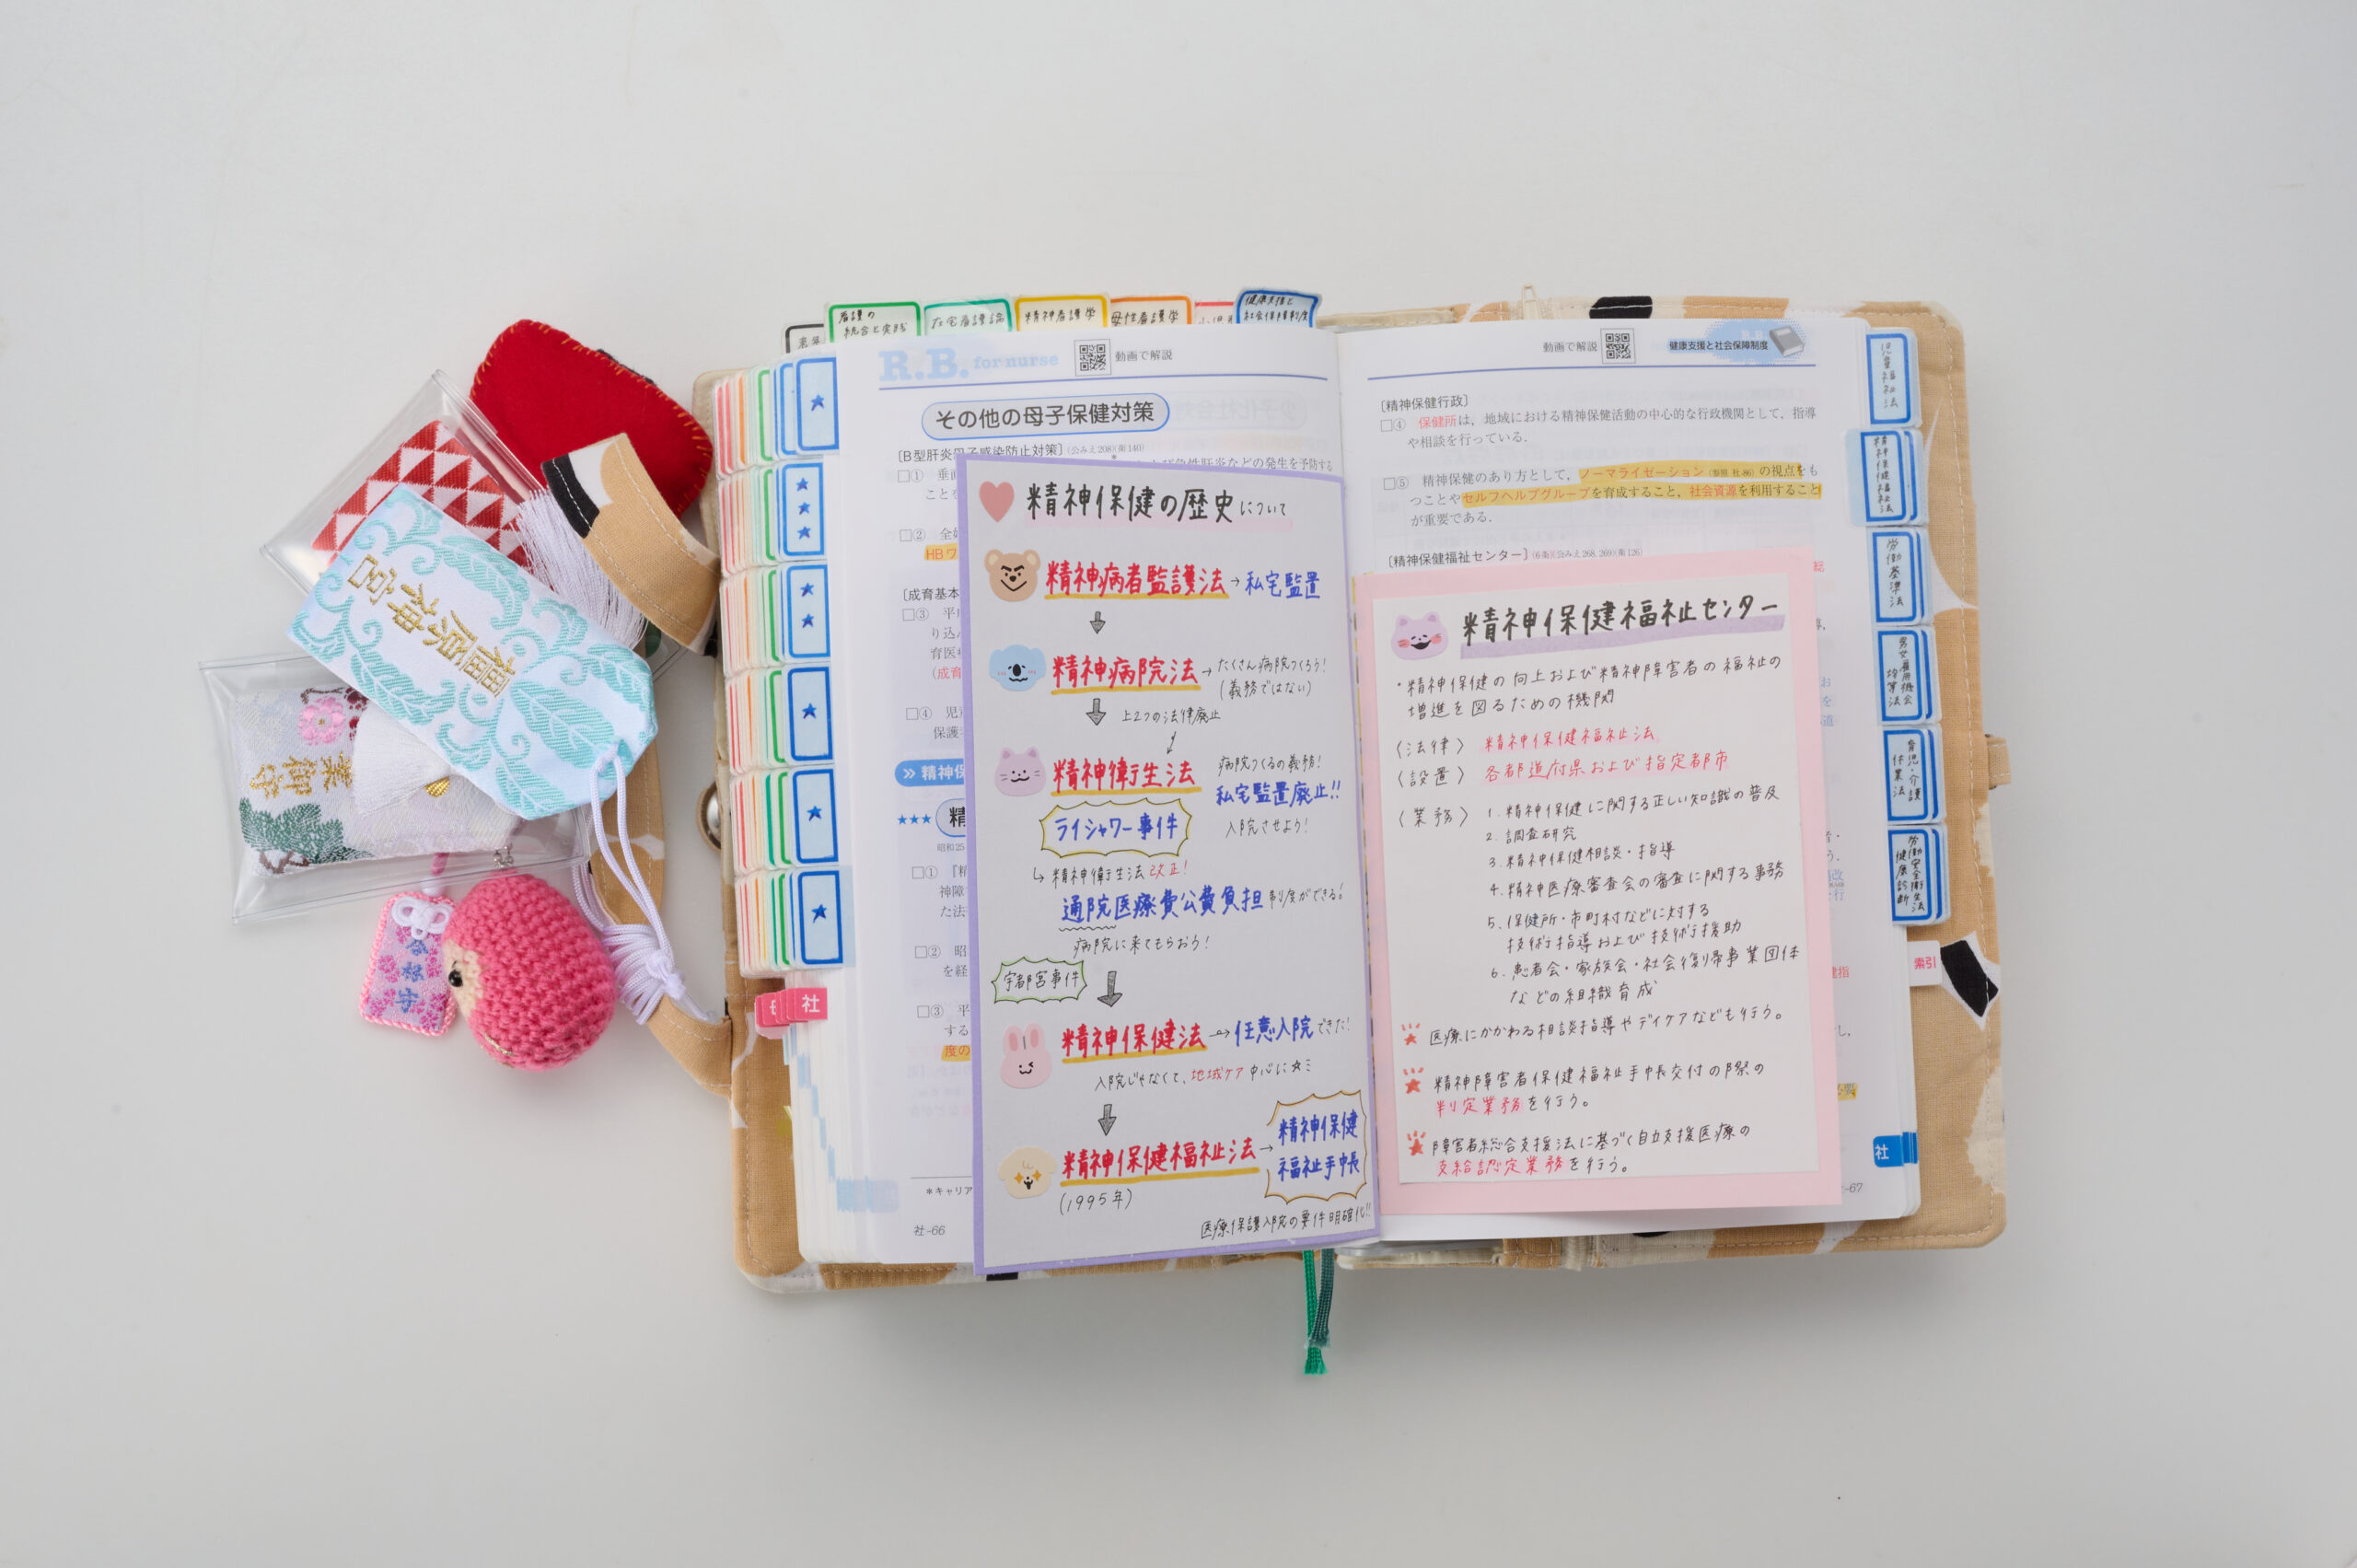 看護の
統合と実践
在宅看護論
精神看護学
母性看護学
健康支援と
社会保障制度
R.B. for nurse
動画で解説
その他の母子保健対策
〔B型肝炎母子感染防止対策〕(公みえ208)(衛140)
急性肝炎などの発生を予防する
□① 垂直
こと
□②
HBワ
〔成育基本
□③ 平成
り込
育医
(成育
□④ 児
保護
≫精神保
★★★ 精
昭和25
□①『精
神障
た法
□② 昭
を経
□③ 平
する
度の
*キャリア
社-66
社
精神保健の歴史について
精神病者監護法→私宅監置
精神病院法→たくさん病院つくろう!
(義務ではない)
上2つの法律廃止
精神衛生法
病院つくるの義務!
私宅監置廃止!!
入院させよう!
ライシャワー事件
↳精神衛生法改正!
通院医療費公費負担制度ができる!
病院に来てもらおう!
宇都宮事件
精神保健法→任意入院できた!
入院じゃなくて、地域ケア中心に☆ミ
精神保健福祉法→精神保健
福祉手帳
(1995年)
医療保護入院の要件明確化!!
動画で解説
健康支援と社会保障制度
〔精神保健行政〕
□④ 保健所は,地域における精神保健活動の中心的な行政機関として,指導
や相談を行っている.
□⑤ 精神保健のあり方として,ノーマライゼーション(参照 社-86)の視点をも
つことやセルフヘルプグループを育成すること,社会資源を利用すること
が重要である.
〔精神保健福祉センター〕(6条)(公みえ268, 269)(衛126)
精神保健福祉センター
・精神保健の向上および精神障害者の福祉の
増進を図るための機関
〈法律〉 精神保健福祉法
〈設置〉 各都道府県および指定都市
〈業務〉 1.精神保健に関する正しい知識の普及
2.調査研究
3.精神保健相談・指導
4.精神医療審査会の審査に関する事務
5.保健所・市町村などに対する
技術指導および技術援助
6.患者会・家族会・社会復帰事業団体
などの組織育成
★医療にかかわる相談指導やデイケアなども行う。
★精神障害者保健福祉手帳交付の際の
判定業務を行う。
★障害者総合支援法に基づく自立支援医療の
支給認定業務を行う。
-67
児童福祉法
精神保健福祉法
労働基準法
男女雇用機会
均等法
育児・介護
休業法
労働安全衛生法
健康診断
索引
社
福居神宮
業御守